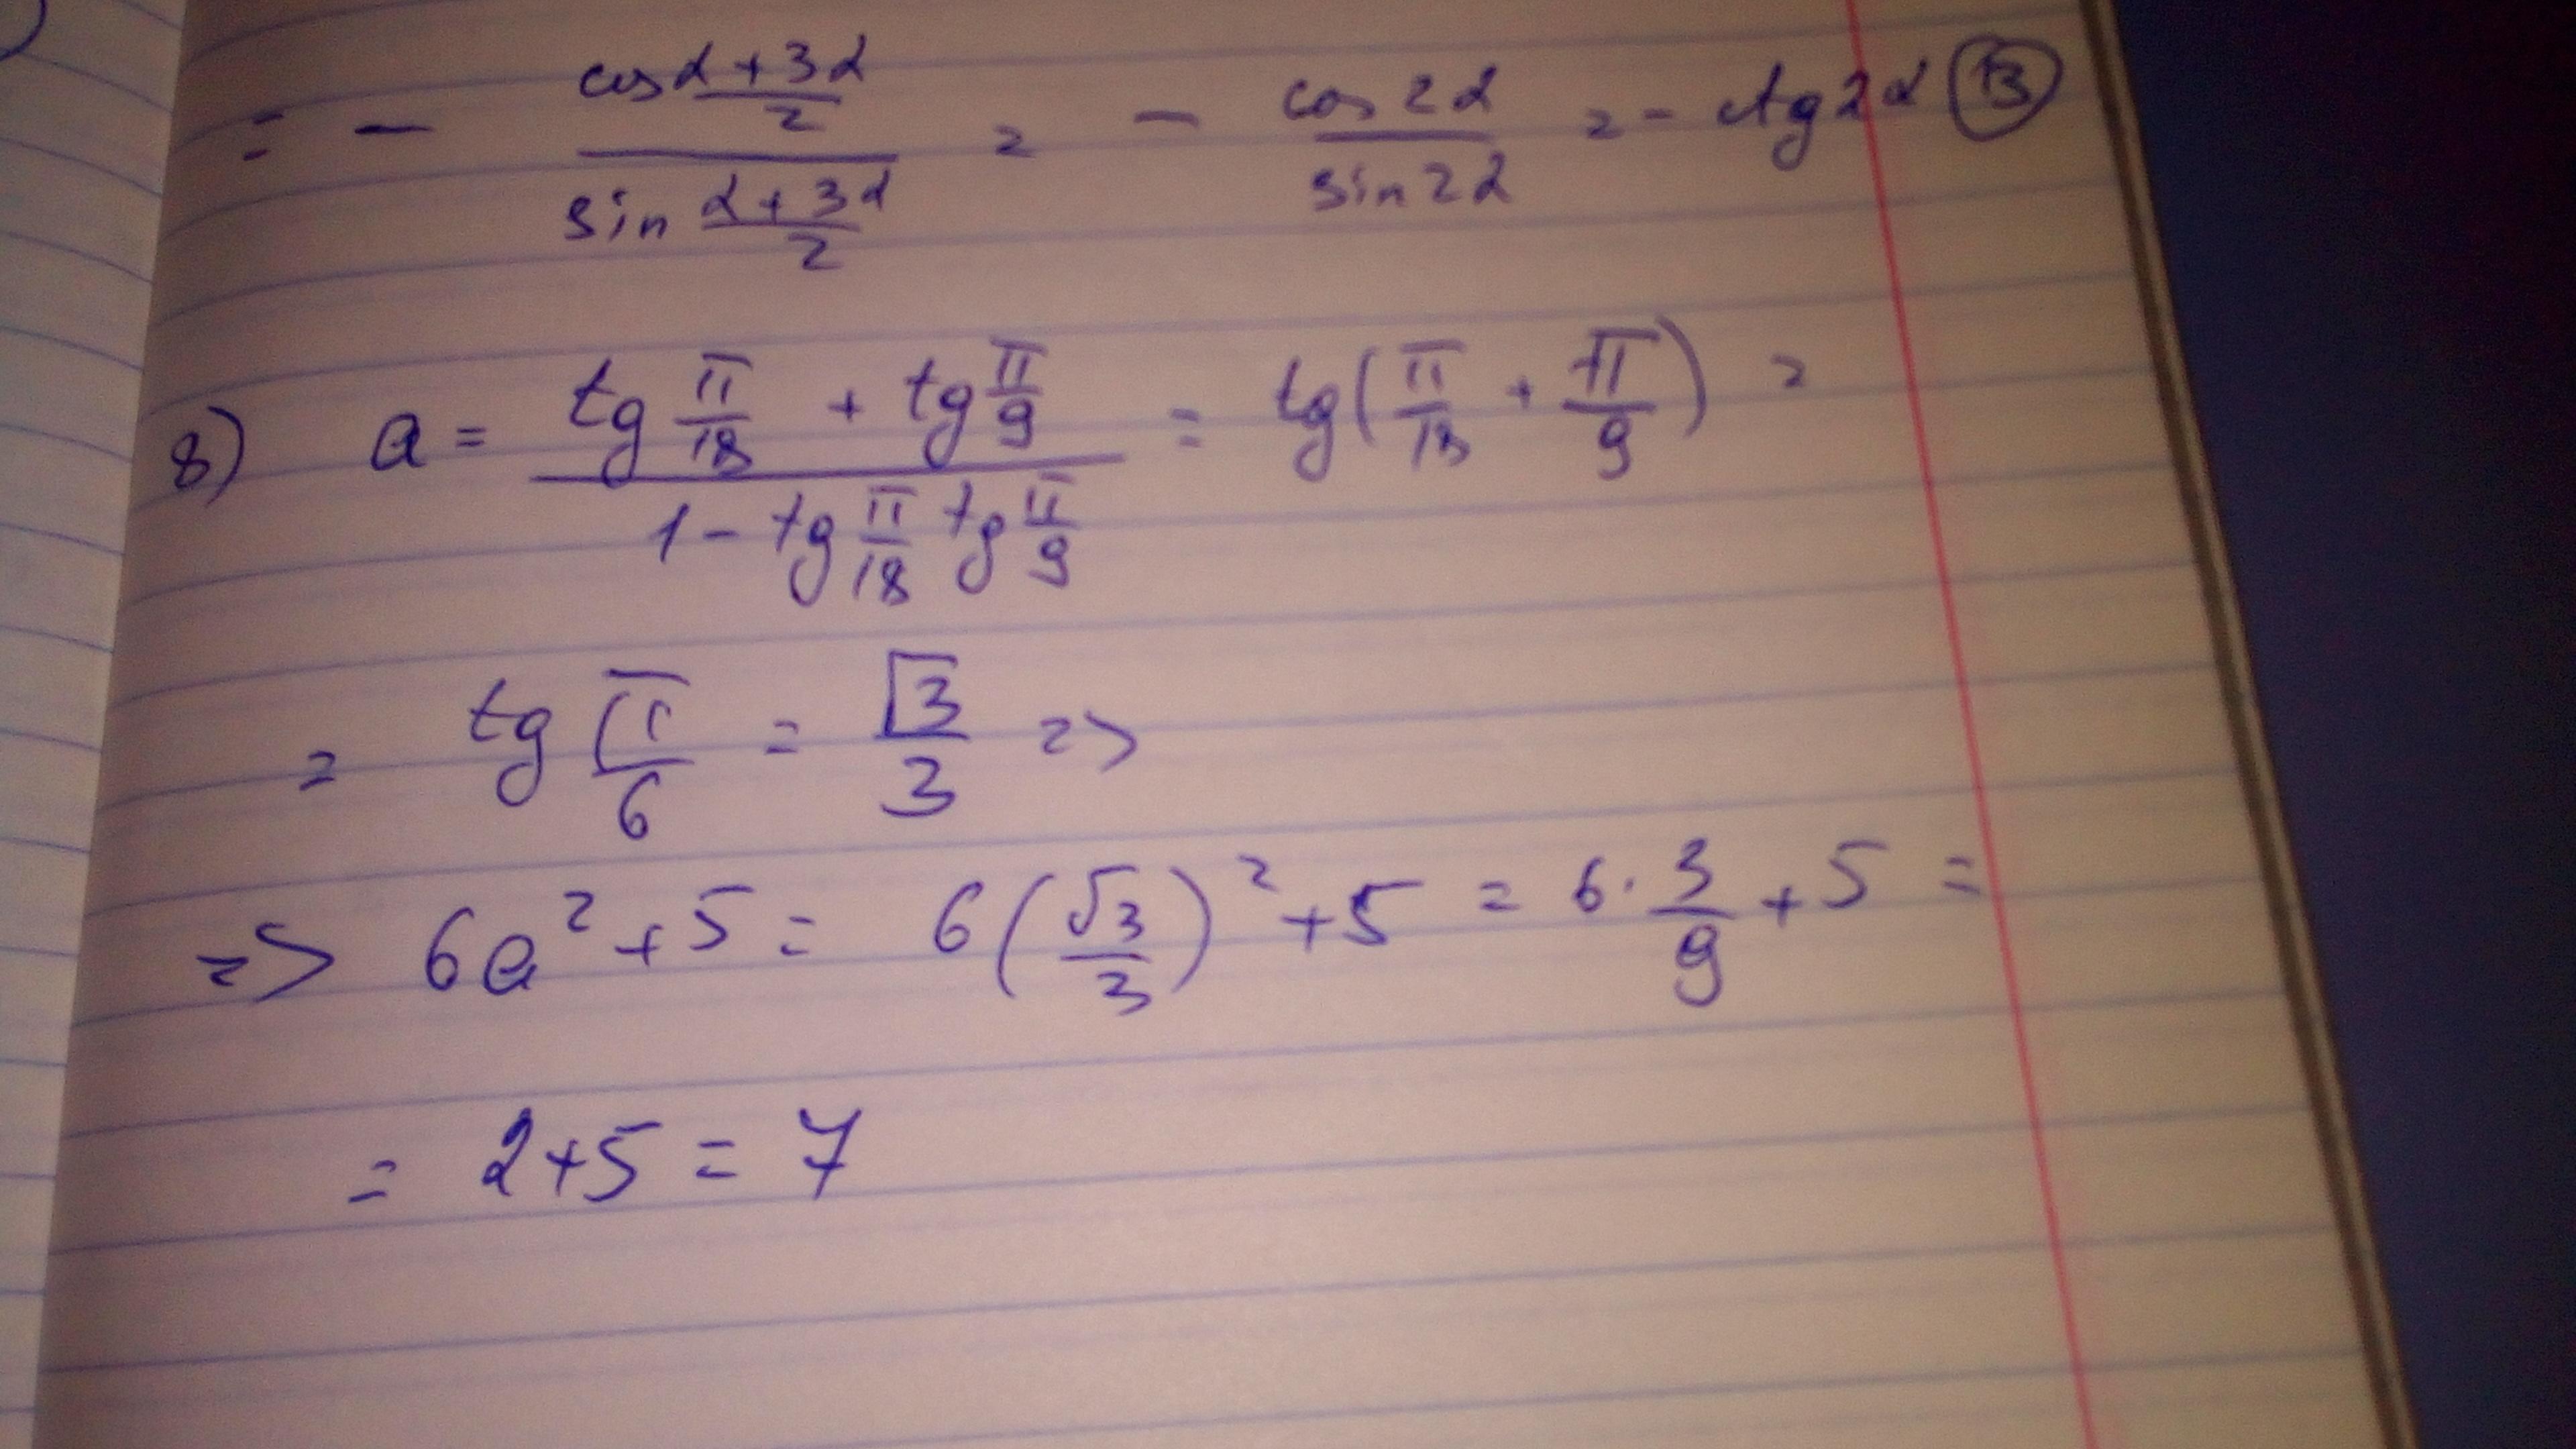 = - (cos (α+3α)/2)/(sin (α+3α)/2) = - (cos 2α)/(sin 2α) = - ctg 2α (B)
8) a = (tg π/18 + tg π/9)/(1 - tg π/18 tg π/9) = tg(π/18 + π/9) =
= tg π/6 = √3/3 =>
=> 6a² + 5 = 6(√3/3)² + 5 = 6 · 3/9 + 5 =
= 2+5 = 7